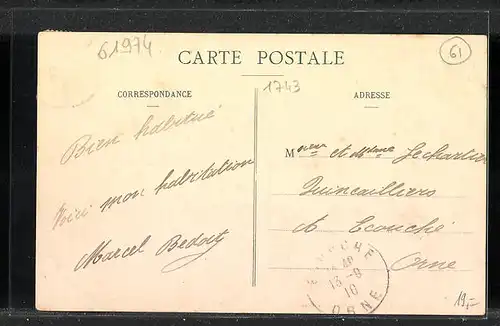 61974
61
CARTE POSTALE
1743
CORRESPONDANCE
ADRESSE
Bien habitué
Voici mon habitation
Marcel
M et Mme Lechartier
Quincailliers
A Ecouché
Orne
ECOUCHE
13 -9
10
ORNE
19,-